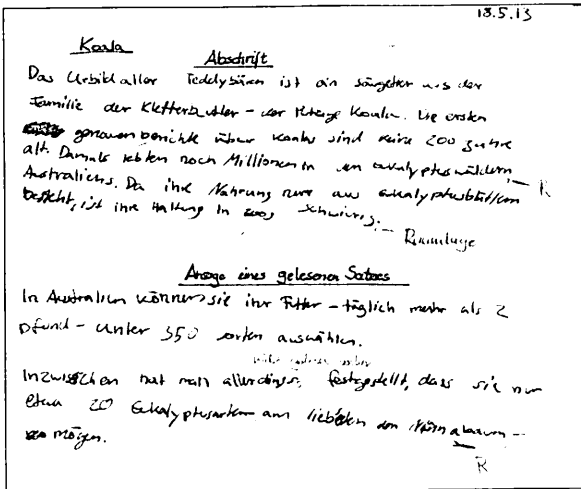 18.5.13
Koala
Abschrift
Das Urbild aller Teddybären ist ein säugetier aus der
Familie der Kletterbeutler – der Koala. Die ersten
genauen berichte über koalas sind keine 200 Jahre
alt. Damals lebten noch Millionen in den eukalyptuswäldern
Australiens. Da ihre Nahrung nur aus eukalyptusblättern – R
besteht, ist ihre Haltung in zoos schwierig. – Raumlage
Ansage eines gelesenen Satzes
In Australien können sie ihr Futter – täglich mehr als 2
pfund – unter 350 sorten auswählen.
Inzwischen hat man allerdings festgestellt, dass sie nur
etwa 20 Eukalyptusarten am liebsten den
mögen.
R